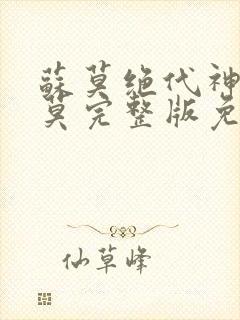 蘇莫绝代神
莫完整版免
仙草峰